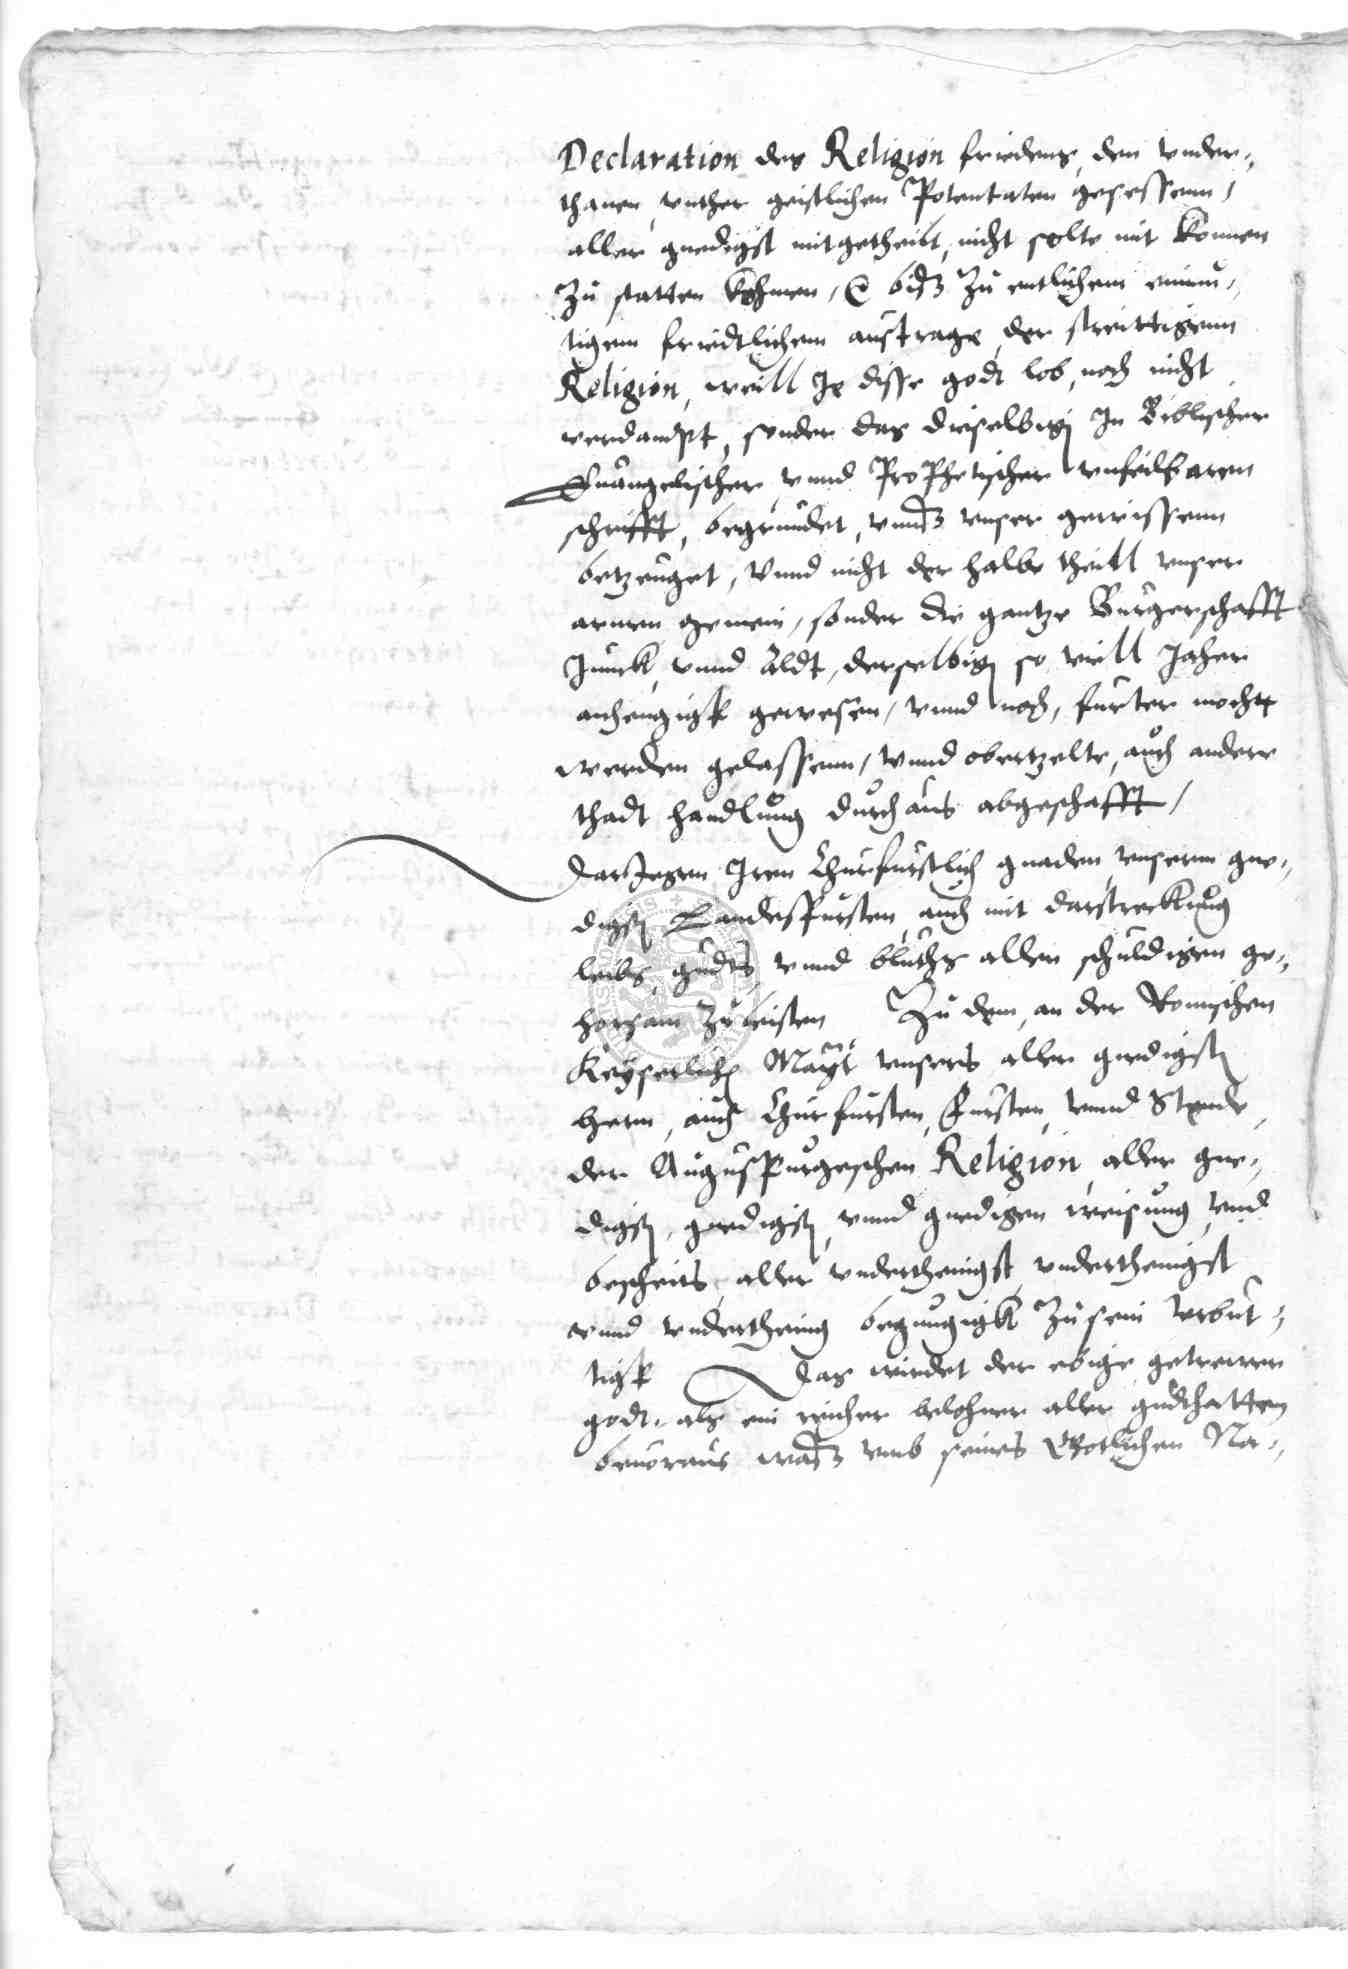 Declaration des Religion friedens, den vnder-
thanen, vnther geistlichen Potentaten gesessenn,
aller gnedigst mitgetheilt, nicht solte mit konnen
zu statten kohmen, biß zu entlichem einmü-
tigem friedtlichem austrage der streittigenn
Religion, weill Je disse godt lob, noch nicht
verdampt, sonder das dieselbige In Biblischer
Euangelischer vnnd Prophetischer vnfeilbaren
schrifft, begrundet, vnnß vnser gewissenn
betzeuget, Vnnd nicht der halbe theill vnser
armen gemein, sonder die gantze Burgerschafft
Junck vnnd aldt, derselbige so viell Jaher
anhengigk gewesen, vnnd noch, furter mochte
werden gelassenn, Vnnd obertzelte, auch andere
thadt handlung durchaus abgeschafft,
DarJegen Jren Churfurstlich gnaden, vnserm gne-
digste Landesfursten, auch mit darstreckung
leibs, gudts, vnnd bluths allen schuldigen ge-
horsam zu leisten Zu dem, an der Romischen
Keyserliche Mayt vnsers aller gnedigste
hern, auch Churfursten, Fursten, vnnd Stende,
der Auguspurgeschen Religion, aller gne-
digste, gnedigste, vnnd gnedigen weisung, vnd
bescheits, aller vnderthenigst, vnderthenigst
vnnd vnderthenig begnugigk zu sein vrbut-
tigk Das wirdet der ewige getrewer
godt, als ein reicher belohner aller gudthatten
beuoraus, waß vmb seines Gotlichen Na-